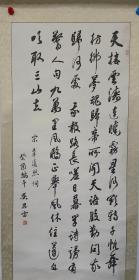 天接雲濤連曉霧星河欲轉千帆舞
彷彿夢魂歸帝所聞天語殷勤問我
歸何處我報路長嗟日暮學詩謾有
驚人句九萬里風鵬正舉風休住蓬舟
吹取三山去
宋李清照詞
端午
書